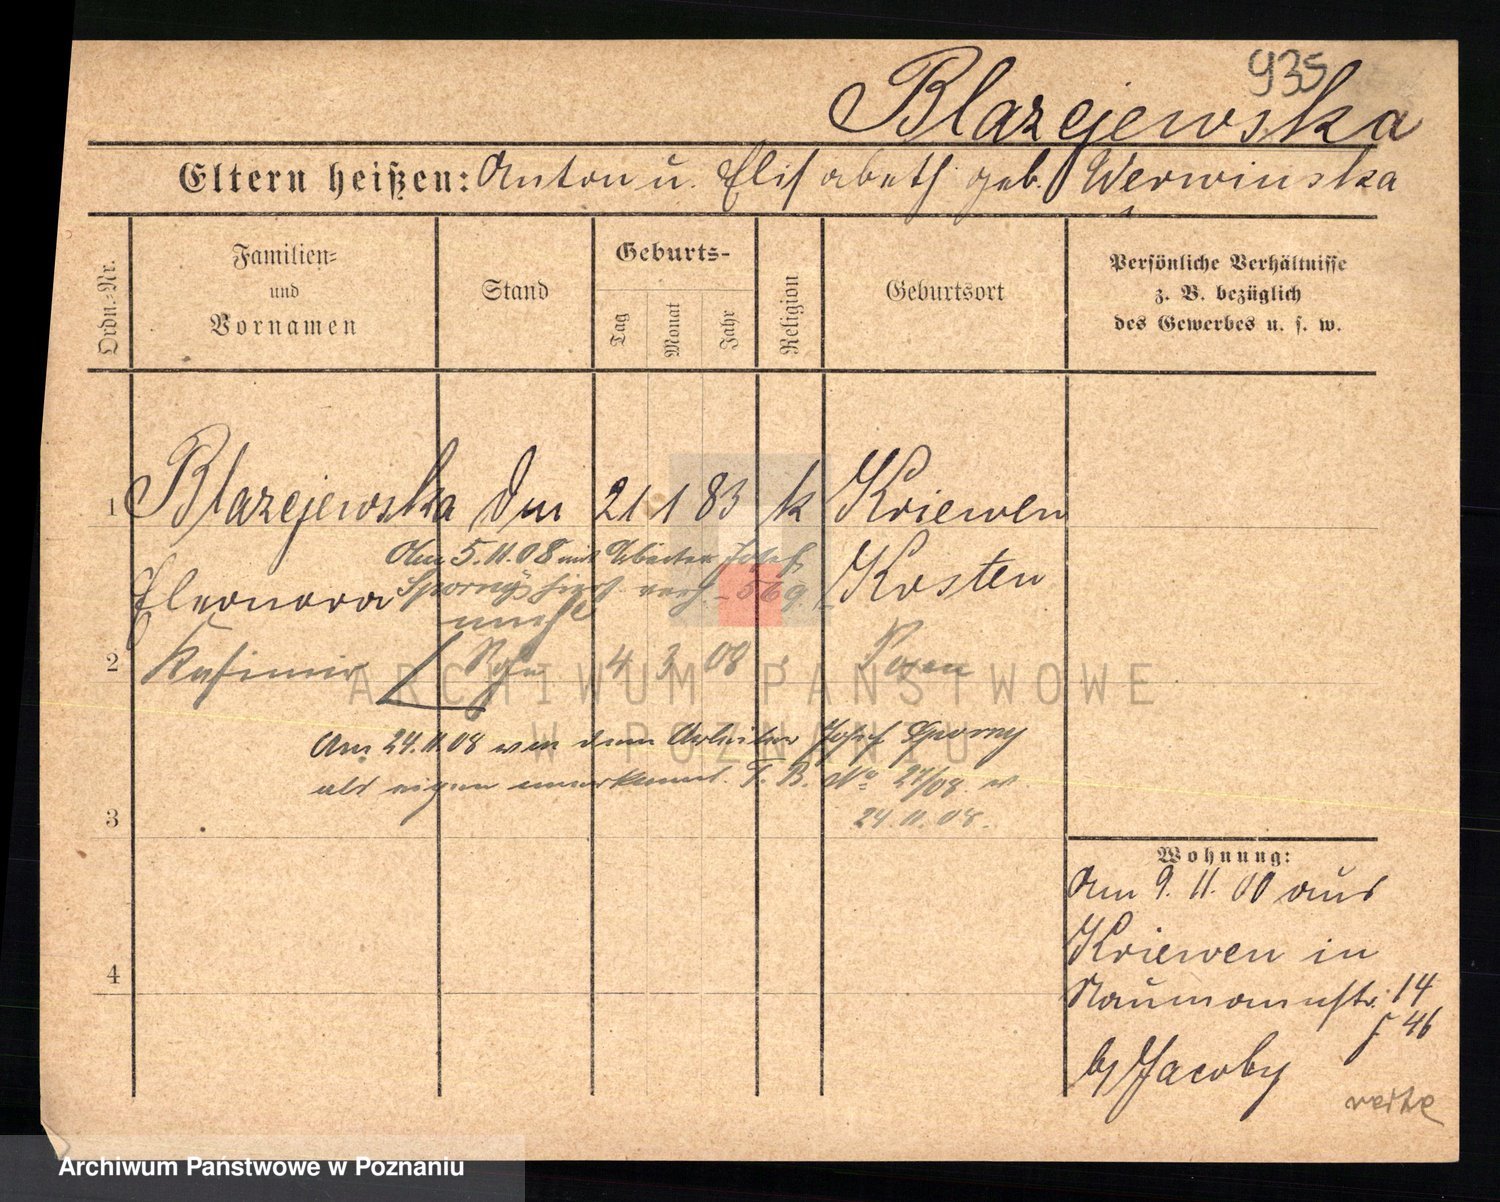 935
Blazejewska
Eltern heißen: Anton u. Elisabeth geb. Werwinska
Ordn.-Nr.
Familien-
und
Vornamen
Stand
Geburts-
Tag
Monat
Jahr
Religion
Geburtsort
Persönliche Verhältnisse
z. B. bezüglich
des Gewerbes u. s. w.
1 Blazejewska 21 1 83 k Kriewen
Am 5.11.08 mit Arbeiter Josef
Eleonora Sporny verh. 569. Kosten
2 Kasimir Sohn 4 3 08 Posen
Am 24.11.08 von dem Arbeiter Josef Sporny
als eigen anerkannt. T. B. No 27/08 v
24.11.08.
3
4
Wohnung:
Am 9. 11. 00 aus
Kriewen in
Naumannstr. 14
f 46
b/ Jacoby
ARCHIWUM PAŃSTWOWE
W POZNANIU
Archiwum Państwowe w Poznaniu